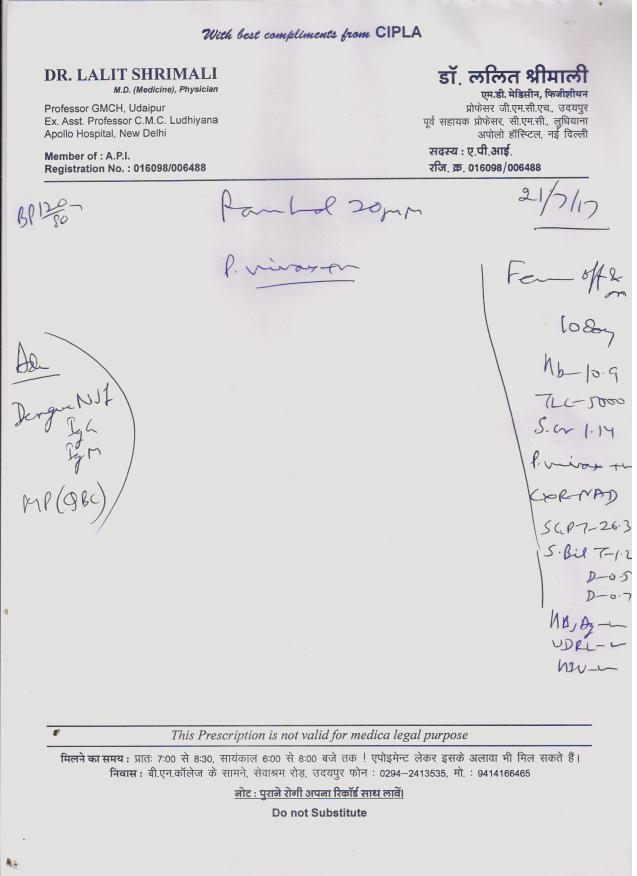 With best compliments from CIPLA
DR. LALIT SHRIMALI
M.D. (Medicine), Physician
Professor GMCH, Udaipur
Ex. Asst. Professor C.M.C. Ludhiyana
Apollo Hospital, New Delhi
Member of : A.P.I.
Registration No. : 016098/006488
डॉ. ललित श्रीमाली
एम.डी. मेडिसीन, फिजीशीयन
प्रोफेसर जी.एम.सी.एच., उदयपुर
पूर्व सहायक प्रोफेसर, सी.एम.सी., लुधियाना
अपोलो हॉस्पिटल, नई दिल्ली
सदस्य : ए.पी.आई.
रजि. क्र. 016098/006488
BP 120/80
21/7/17
P. vivax +ve
off &
on
10 day
Hb - 10.9
TLC - 5000
S. cr 1.14
P. vivax +ve
CXR - NAD
SGPT - 26.3
S. Bil T - 1.2
D - 0.5
D - 0.7
Adv
Dengue NS1
IgG
IgM
MP (QBC)
HBsAg -
VDRL -
HIV -
This Prescription is not valid for medica legal purpose
मिलने का समय : प्रातः 7:00 से 8:30, सायंकाल 6:00 से 8:00 बजे तक ! एपोइमेन्ट लेकर इसके अलावा भी मिल सकते हैं।
निवास : बी.एन.कॉलेज के सामने, सेवाश्रम रोड़, उदयपुर फोन : 0294-2413535, मो. : 9414166465
नोट : पुराने रोगी अपना रिकॉर्ड साथ लावें।
Do not Substitute